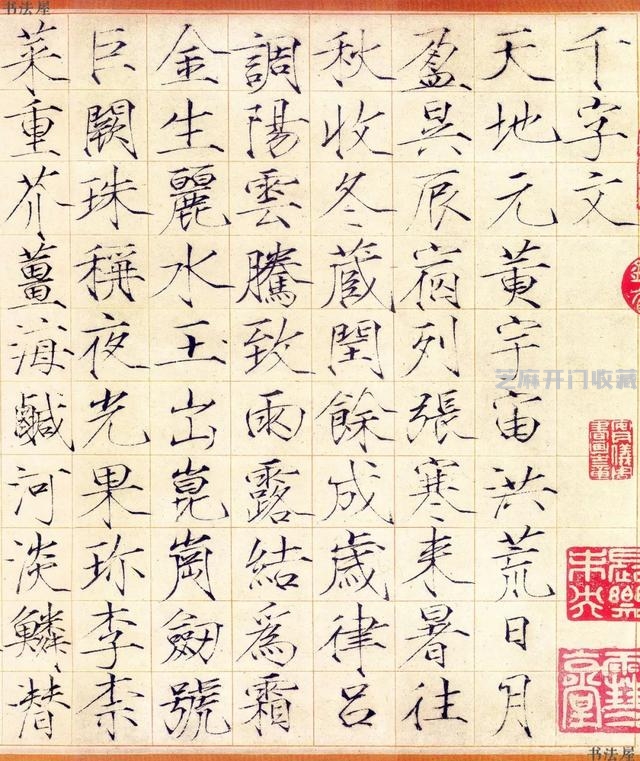 书法屋
千字文
天地元黄宇宙洪荒日月
盈昃辰宿列張寒来暑往
秋收冬蔵閏餘成歳律吕
調陽雲騰致雨露結爲霜
金生麗水玉出崑崗劔號
巨闕珠稱夜光果珎李柰
菜重芥薑海鹹河淡鱗潜
芝麻开门收藏
長樂未央
书法屋